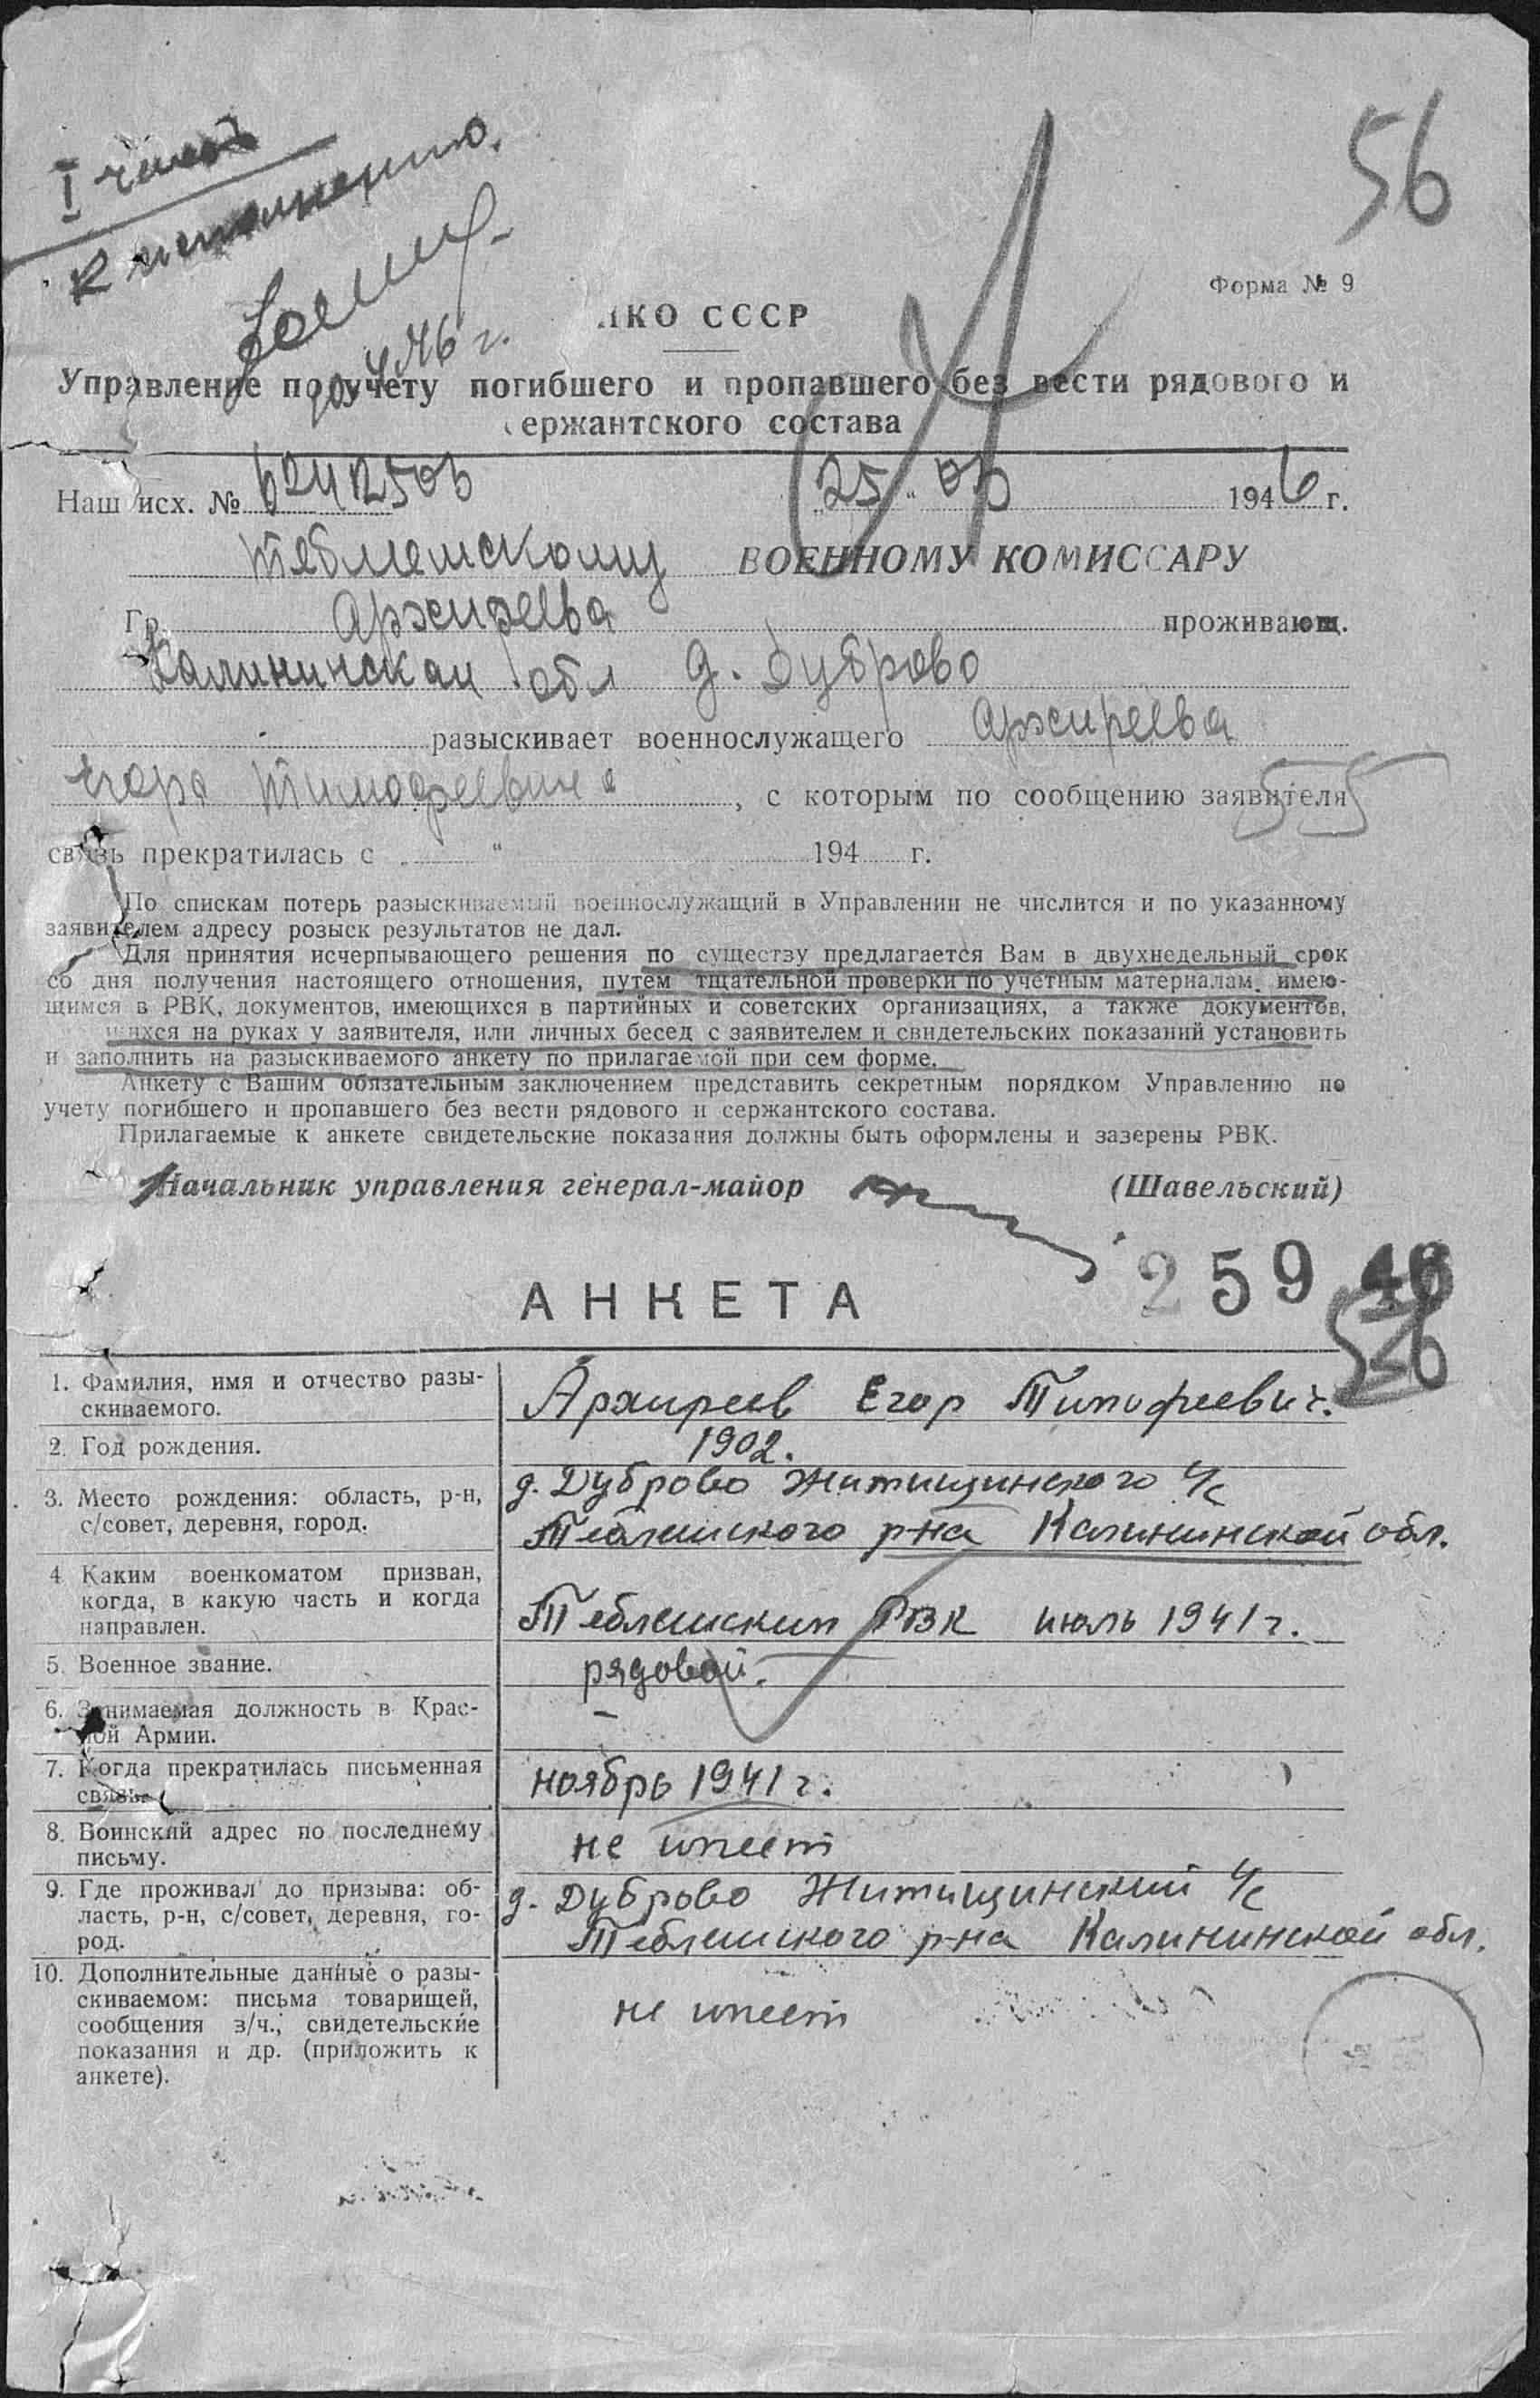 56
I
к исполнению.
4.46 г.
Форма № 9
НКО СССР
Управление по учету погибшего и пропавшего без вести рядового и
сержантского состава
Наш исх. № 6242503 „25“ 03 1946 г.
Теблешскому ВОЕННОМУ КОМИССАРУ
Гр. Архиреева проживающ.
Калининская обл д. Дуброво
разыскивает военнослужащего Архиреева
Егора Тимофеевича, с которым по сообщению заявителя
55
связь прекратилась с „ “ 194 г.
По спискам потерь разыскиваемый военнослужащий в Управлении не числится и по указанному
заявителем адресу розыск результатов не дал.
Для принятия исчерпывающего решения по существу предлагается Вам в двухнедельный срок
со дня получения настоящего отношения, путем тщательной проверки по учетным материалам, имею-
щимся в РВК, документов, имеющихся в партийных и советских организациях, а также документов,
щихся на руках у заявителя, или личных бесед с заявителем и свидетельских показаний установить
и заполнить на разыскиваемого анкету по прилагаемой при сем форме.
Анкету с Вашим обязательным заключением представить секретным порядком Управлению по
учету погибшего и пропавшего без вести рядового и сержантского состава.
Прилагаемые к анкете свидетельские показания должны быть оформлены и заверены РВК.
Начальник управления генерал-майор (Шавельский)
259 46
56
АНКЕТА
1. Фамилия, имя и отчество разы-
скиваемого.
Архиреев Егор Тимофеевич.
2. Год рождения.
1902.
3. Место рождения: область, р-н,
с/совет, деревня, город.
д. Дуброво Житищинского с/с
Теблешского р-на Калининской обл.
4. Каким военкоматом призван,
когда, в какую часть и когда
направлен.
Теблешским РВК июль 1941 г.
5. Военное звание.
рядовой.
6. Занимаемая должность в Крас-
ной Армии.
–
7. Когда прекратилась письменная
связь.
ноябрь 1941 г.
8. Воинский адрес по последнему
письму.
не имеет
9. Где проживал до призыва: об-
ласть, р-н, с/совет, деревня, го-
род.
д. Дуброво Житищинский с/с
Теблешского р-на Калининской обл.
10. Дополнительные данные о разы-
скиваемом: письма товарищей,
сообщения з/ч., свидетельские
показания и др. (приложить к
анкете).
не имеет